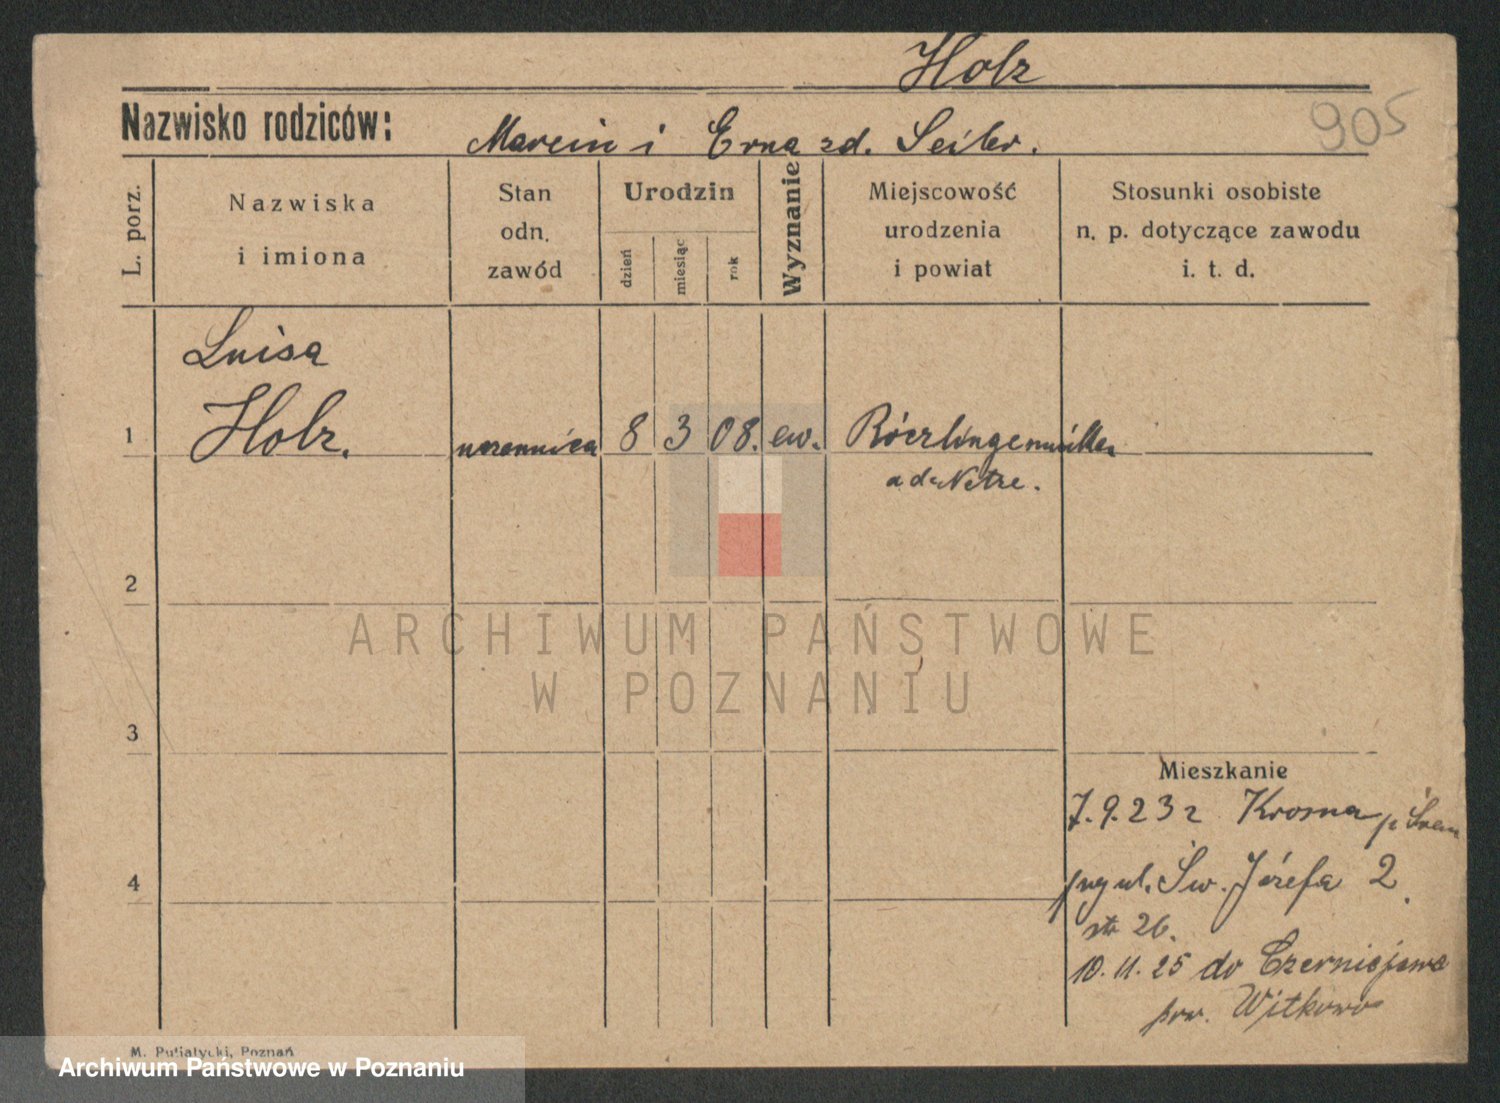 Holz
905
Nazwisko rodziców: Marcin i Erna zd. Seiler.
L. porz.
Nazwiska i imiona
Stan odn. zawód
Urodzin
dzień
miesiąc
rok
Wyznanie
Miejscowość urodzenia i powiat
Stosunki osobiste n. p. dotyczące zawodu i. t. d.
Luisa
1 Holz. uczennica 8 3 08. ew.
a d. Netze.
2
ARCHIWUM PAŃSTWOWE
W POZNANIU
3
Mieszkanie
7.9.23 r Krosna p Śrem
4 przy ul. Św. Józefa 2.
str 26.
10.11.25 do Czerniejewa
pow. Witkowo
M. Putiatycki, Poznań
Archiwum Państwowe w Poznaniu